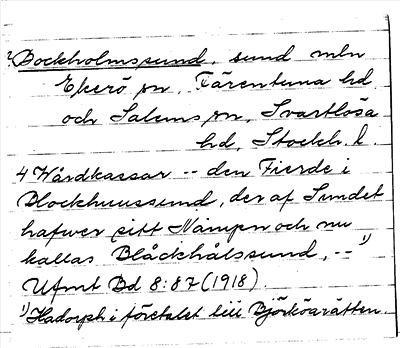 Bockholmssund, sund mln
Ekerö sn, Färentuna hd
och Salems sn, Svartlösa
hd, Stockh. l.
4 Wårdkassar -- den Fierde i
Blockhuussund, der af Sundet
hafwer sitt Nampn och nu
kallas Blåckhålssund, -- 1)
Ufmt Bd 8:87 (1918).
1) Hadorph i företalet till Björköarätten.